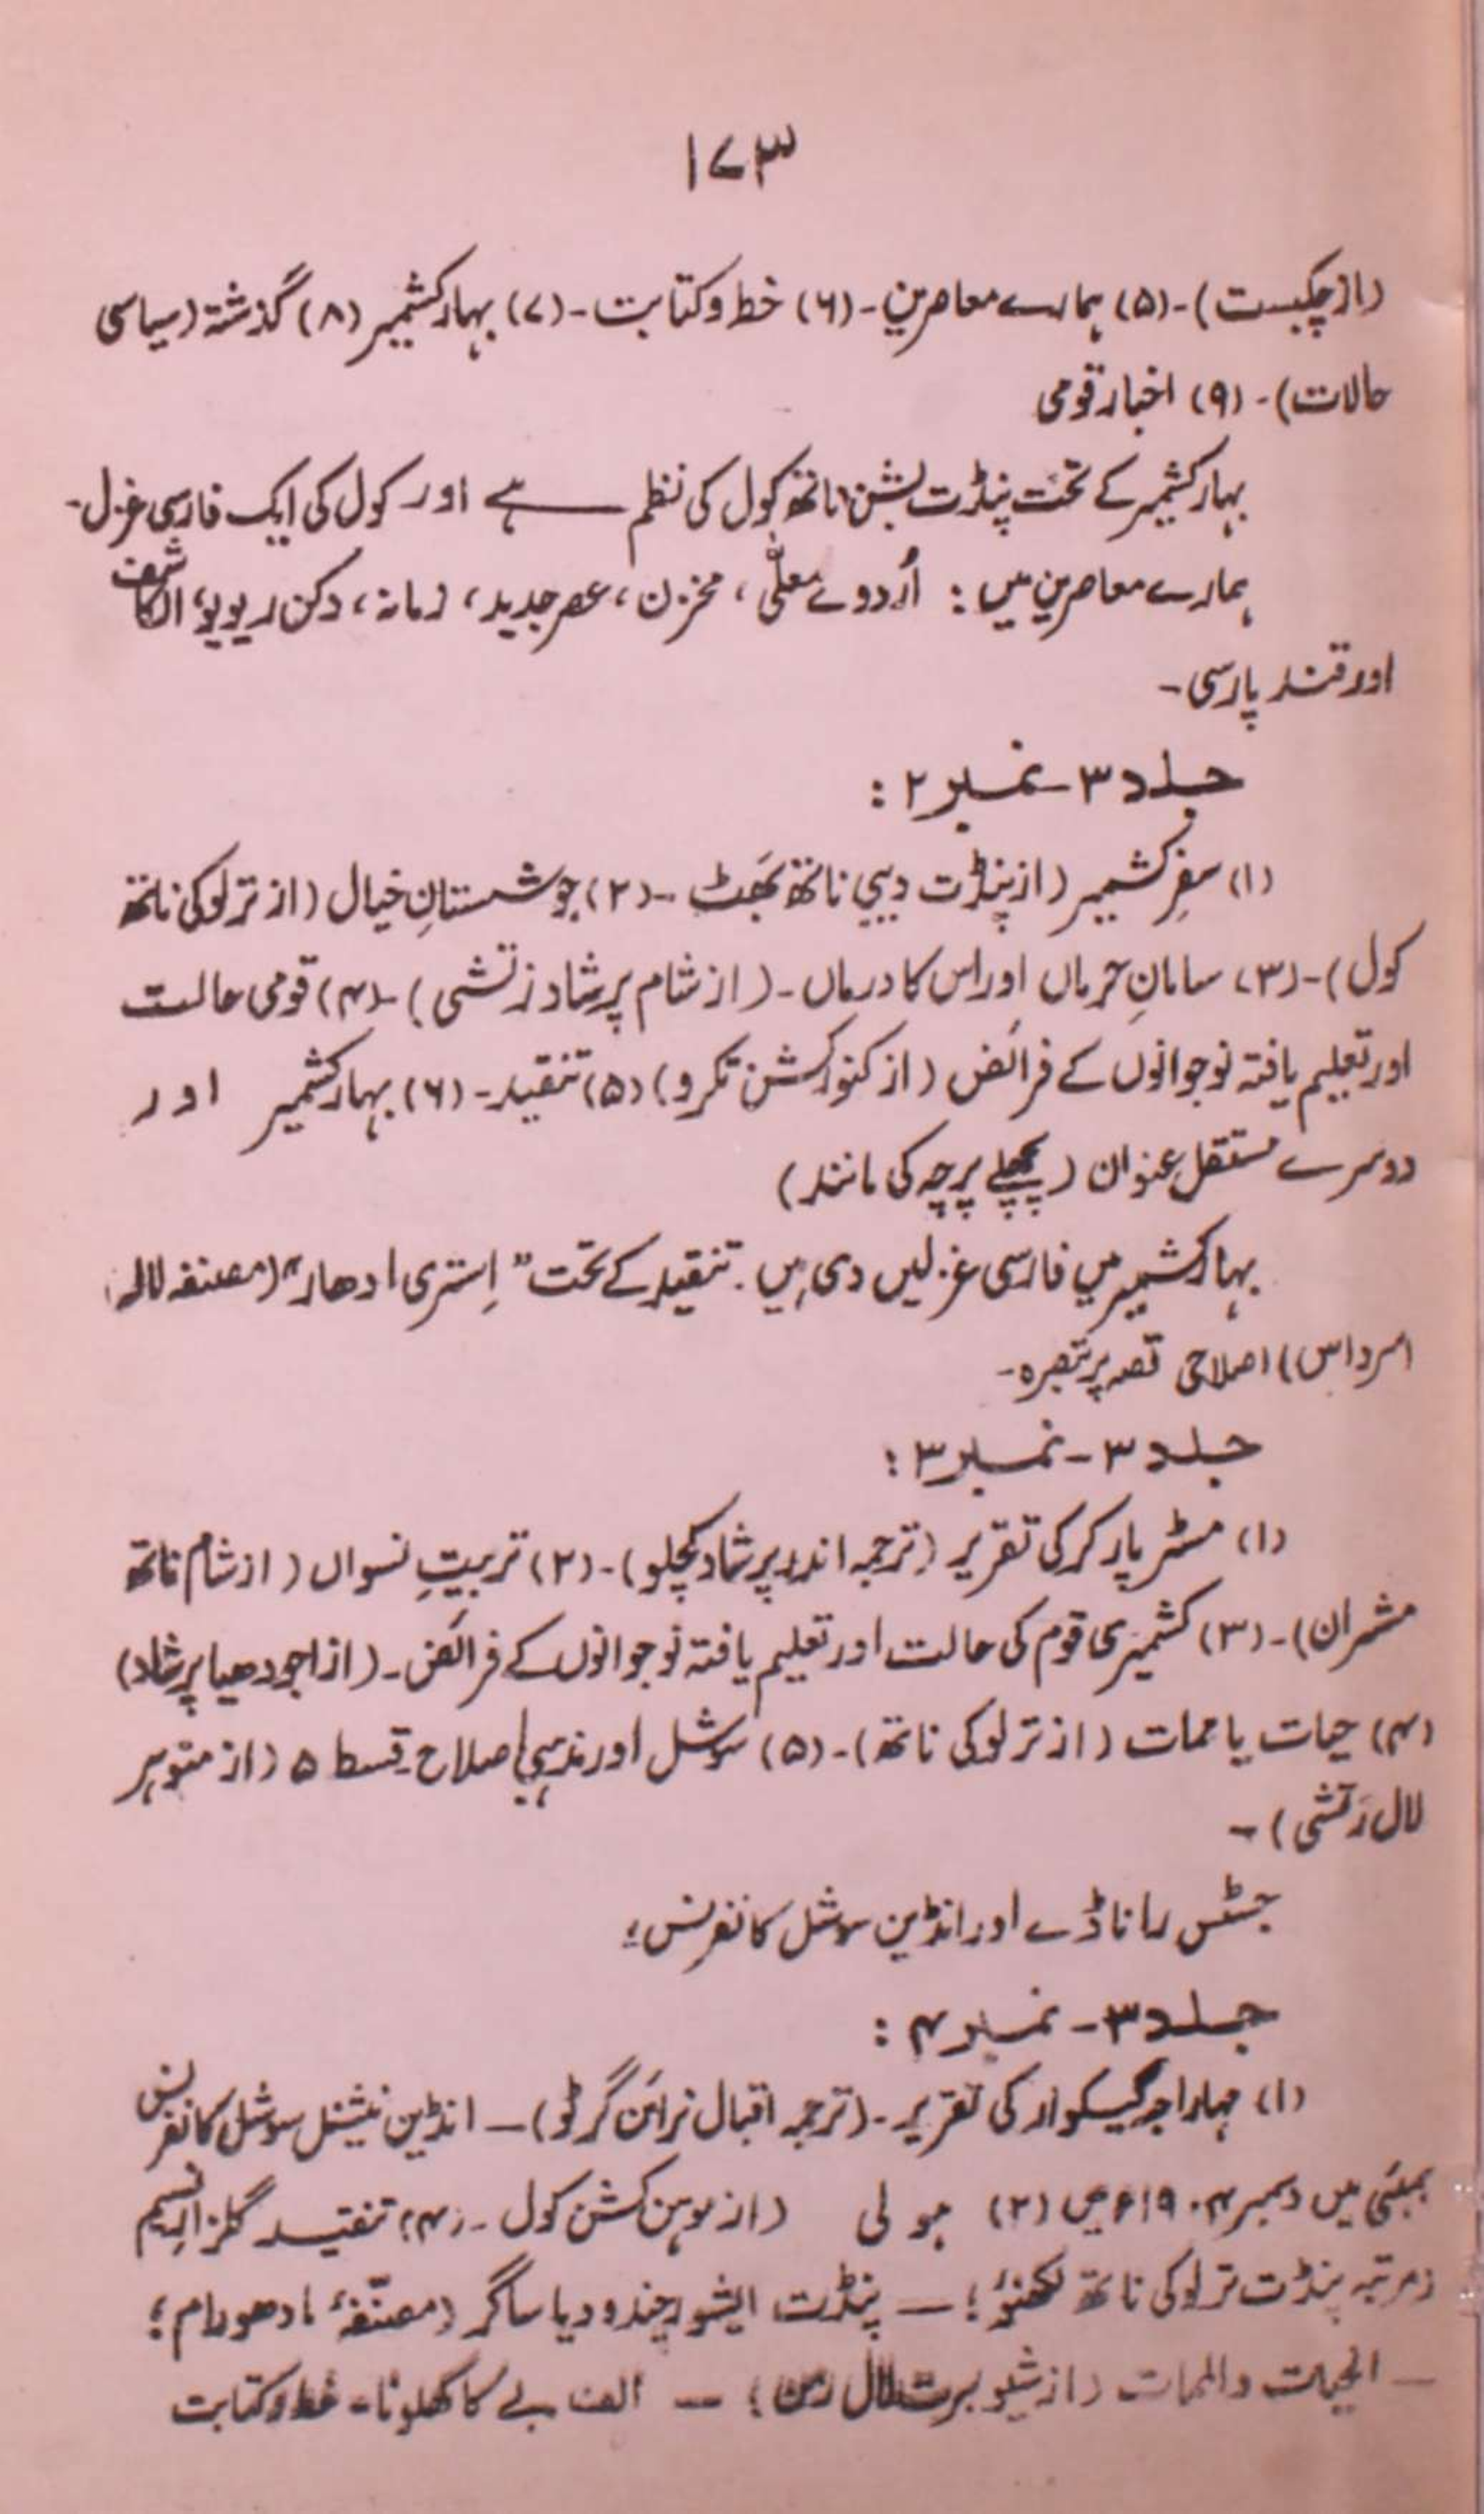 ۱۷۳
(از چکبست)۔ (۵) ہمارے معاصرین۔ (۶) خط و کتابت۔ (۷) بہار کشمیر (۸) گذشتہ (سیاسی
حالات)۔ (۹) اخبار قومی
بہار کشمیر کے تحت پنڈت بشن ناتھ کول کی نظم ہے اور کول کی ایک فارسی غزل۔
ہمارے معاصرین میں: اُردوے معلّٰی، مخزن، عصر جدید، زمانہ، دکن ریویو، الکاشف
اور قند پارسی۔
جلد ۳۔ نمبر ۲:
(۱) سفرِ کشمیر (از پنڈت دیبی ناتھ بھَٹ۔ (۲) جوشستانِ خیال (از ترلوکی ناتھ
کول)۔ (۳) سامانِ حرماں اور اس کا درماں۔ (از شام پرشاد زتشی)۔ (۴) قومی حالت
اور تعلیم یافتہ نوجوانوں کے فرائض (از کنور کشن تکرو) (۵) تنقید۔ (۶) بہار کشمیر اور
دوسرے مستقل عنوان (پچھلے پرچہ کی مانند)
بہار کشمیر میں فارسی غزلیں دی ہیں۔ تنقید کے تحت "اِستری ادھار" (مصنفہ لالہ
امرداس) اصلاحی قصہ پر تبصرہ۔
جلد ۳۔ نمبر ۳:
(۱) مسٹر پارکر کی تقریر (ترجمہ اندر پرشاد کچلو)۔ (۲) تربیتِ نسواں (از شام ناتھ
مشران)۔ (۳) کشمیری قوم کی حالت اور تعلیم یافتہ نوجوانوں کے فرائض۔ (از اجودھیا پرشاد)
(۴) حیات یا ممات (از ترلوکی ناتھ)۔ (۵) سوشل اور مذہبی اصلاح۔ قسط ۵ (از منوہر
لال زتشی)۔
جسٹس راناڈے اور انڈین سوشل کانفرنس؛
جلد ۳۔ نمبر ۴:
(۱) مہاراجہ گیکوار کی تقریر۔ (ترجمہ اقبال نرائن گرٹو)۔ انڈین نیشنل سوشل کانفرنس
بمبئی میں دسمبر ۱۹۰۴ء میں (۲) ہولی (از موہن کشن کول۔ (۴) تنقید گلزار نسیم
(مرتبہ پنڈت ترلوکی ناتھ لکھنؤ؛ — پنڈت ایشور چندر ودیا ساگر (مصنّفۂ مادھو رام؛
— الحیات والممات (از شیو برت لال) — الف بے کا کھلونا۔ خط و کتابت